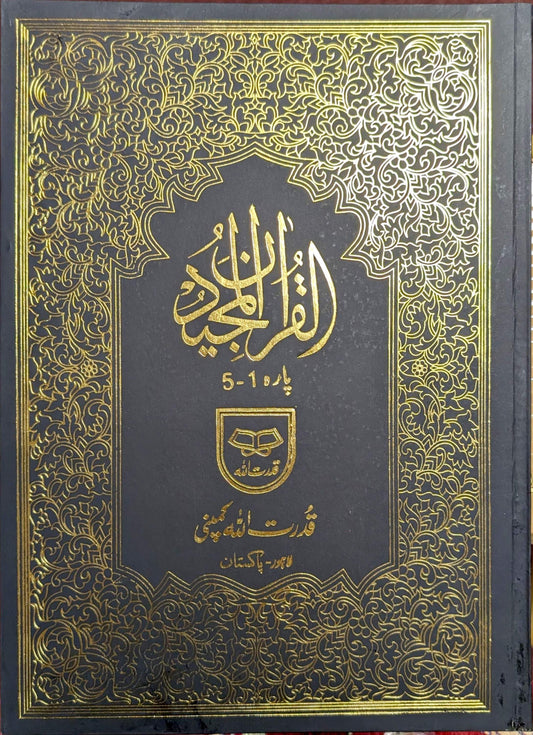 القرآن المجید
پارہ 1-5
قدرت اللہ
قُدرت اللہ کمپنی
لاہور - پاکستان